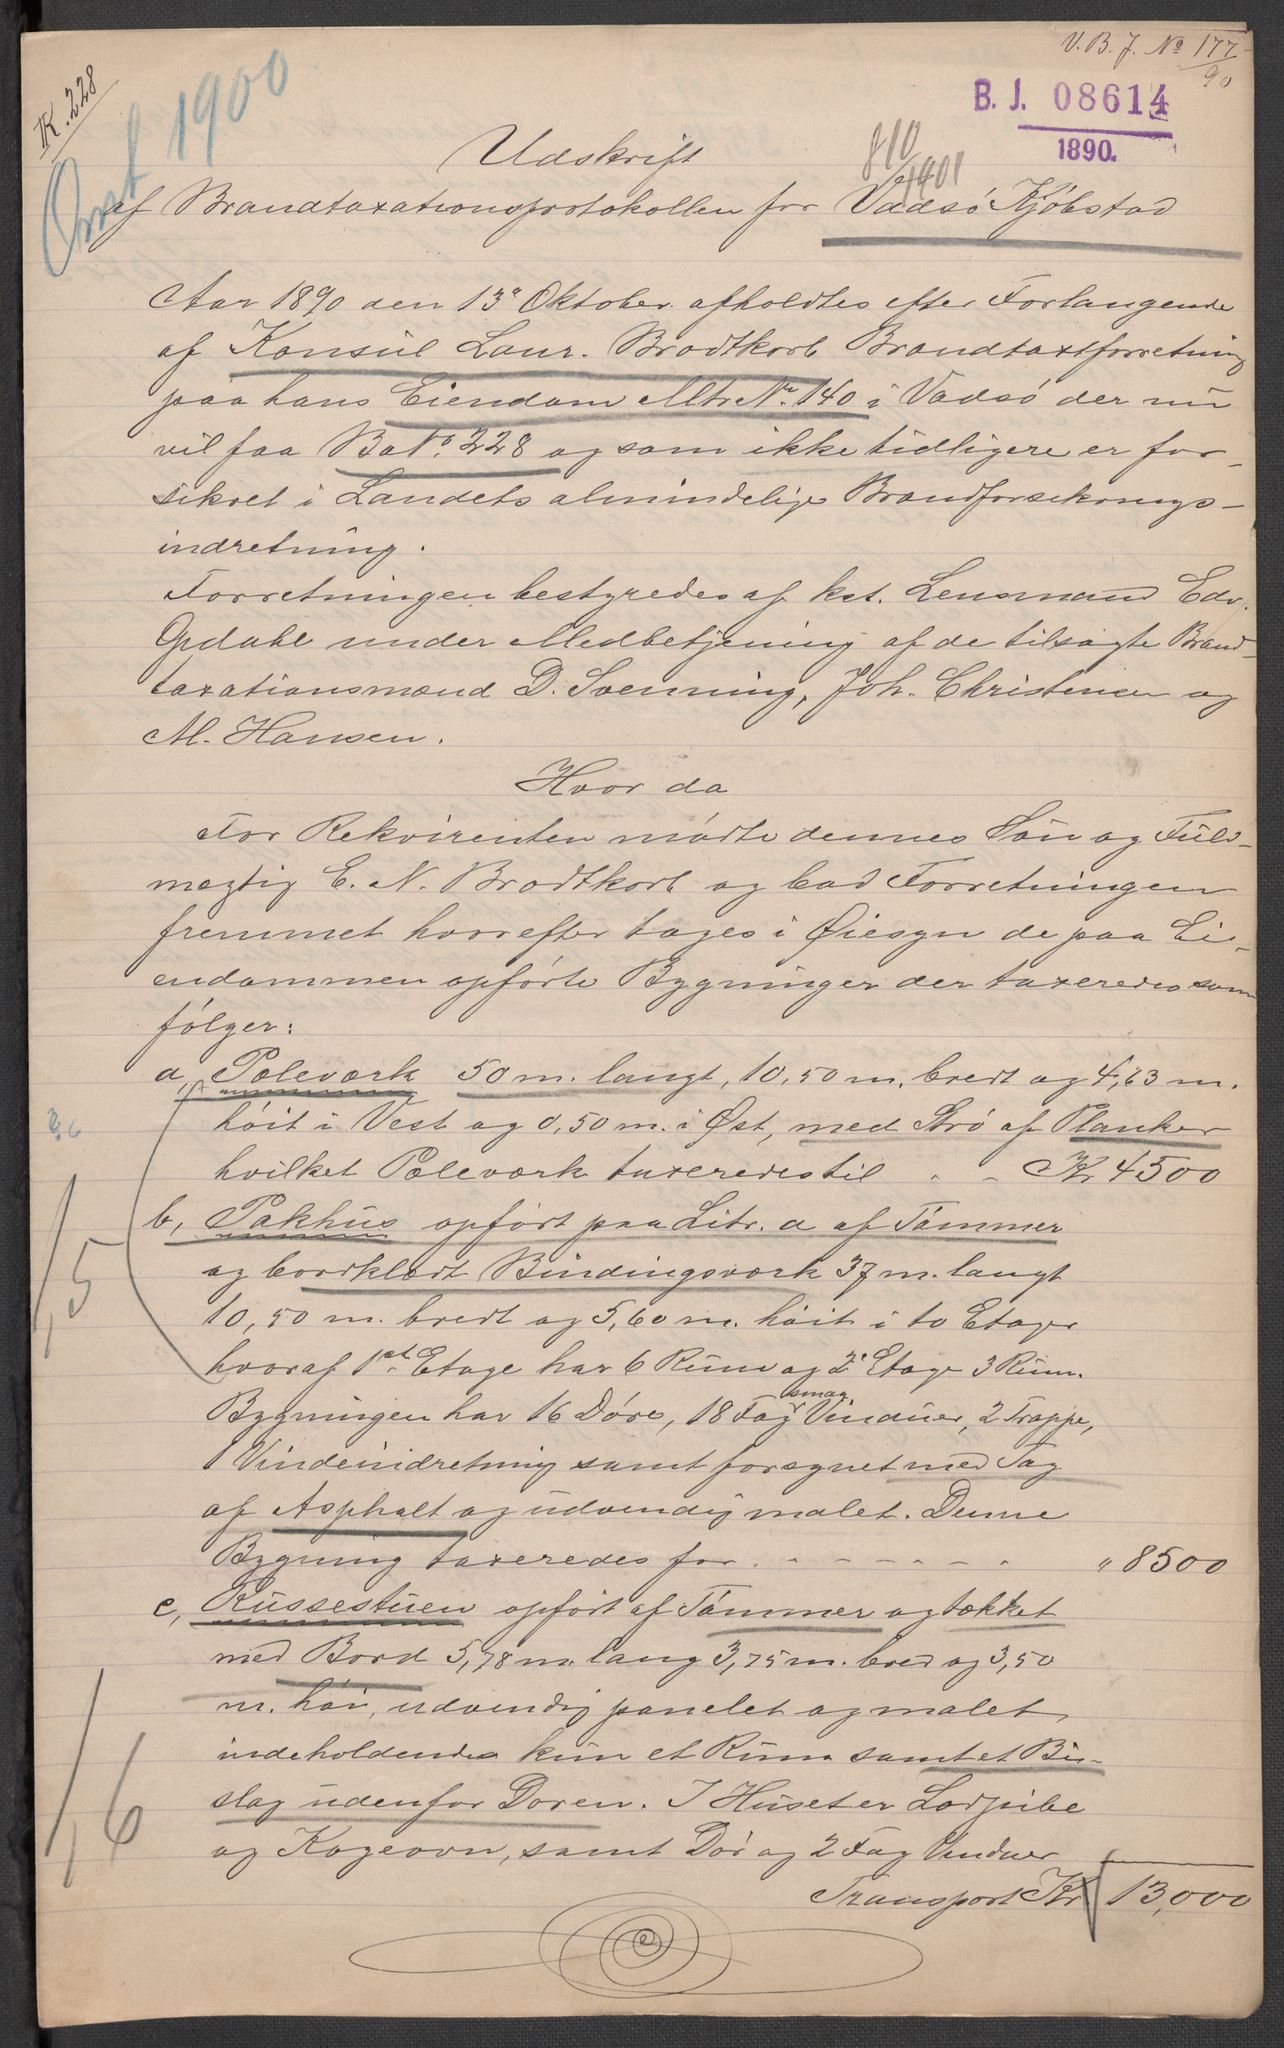 V. B. J. No 177/90
B. J. 08614
1890.
K. 228
1900
810
1901
Udskrift
af Brandtaxationsprotokollen for Vadsö Kjöbstad
Aar 1890 den 13de Oktober afholdtes efter Forlangende
af Konsul Laur. Brodtkorb Brandtaxtforretning
paa hans Eiendom Mtr No 140 i Vadsö der nu
vil faa Bo No. 228 og som ikke tidligere er for-
sikret i Landets almindelige Brandforsikrings-
indretning.
Forretningen bestyredes af kst. Lensmand Edv.
Opdahl under Medbetjening af de tilsagte Brand-
taxationsmænd D. Svenning, Joh. Christensen og
M. Hansen.
Hvor da
For Rekvirenten mödte dennes Sön og Fuld-
mægtig E. N. Brodtkorb og bad Forretningen
fremmet hvorefter toges i Øiesyn de paa Ei-
endommen opförte Bygninger der taxeredes som
fölger:
a, Peleværk 50 m. langt, 10,50 m. bredt og 4,63 m.
höit i Vest og 0,50 m. i Øst, med Strö af Planker
hvilket Peleværk taxeredes til - - Kr 4500
b, Pakhus opfört paa Litr. a af Tömmer
og bordklædt Bindingsværk 37 m. langt
10,50 m. bredt og 5,60 m. höit i to Etager
hvoraf 1ste Etage har 6 Rum og 2. Etage 3 Rum.
Bygningen har 16 Döre, 18 Fag smaa Vinduer, 2 Trappe,
1 Vindeindretning samt forsynet med Tag
af Asphalt og udvendig malet. Denne
Bygning taxeredes for - - - - - - " 8500
c, Russestuen opfört af Tömmer og tækket
med Bord 5,78 m. lang 3,75 m. bred og 3,50
m. höi, udvendig panelet og malet,
indeholdende kun et Rum samt et Bi-
slag udenfor Doren. I Huset er Lodpibe
og Kogeovn, samt Dör og 2 Fag Vinduer
Transport Kr. 13,000
1,5
1,6